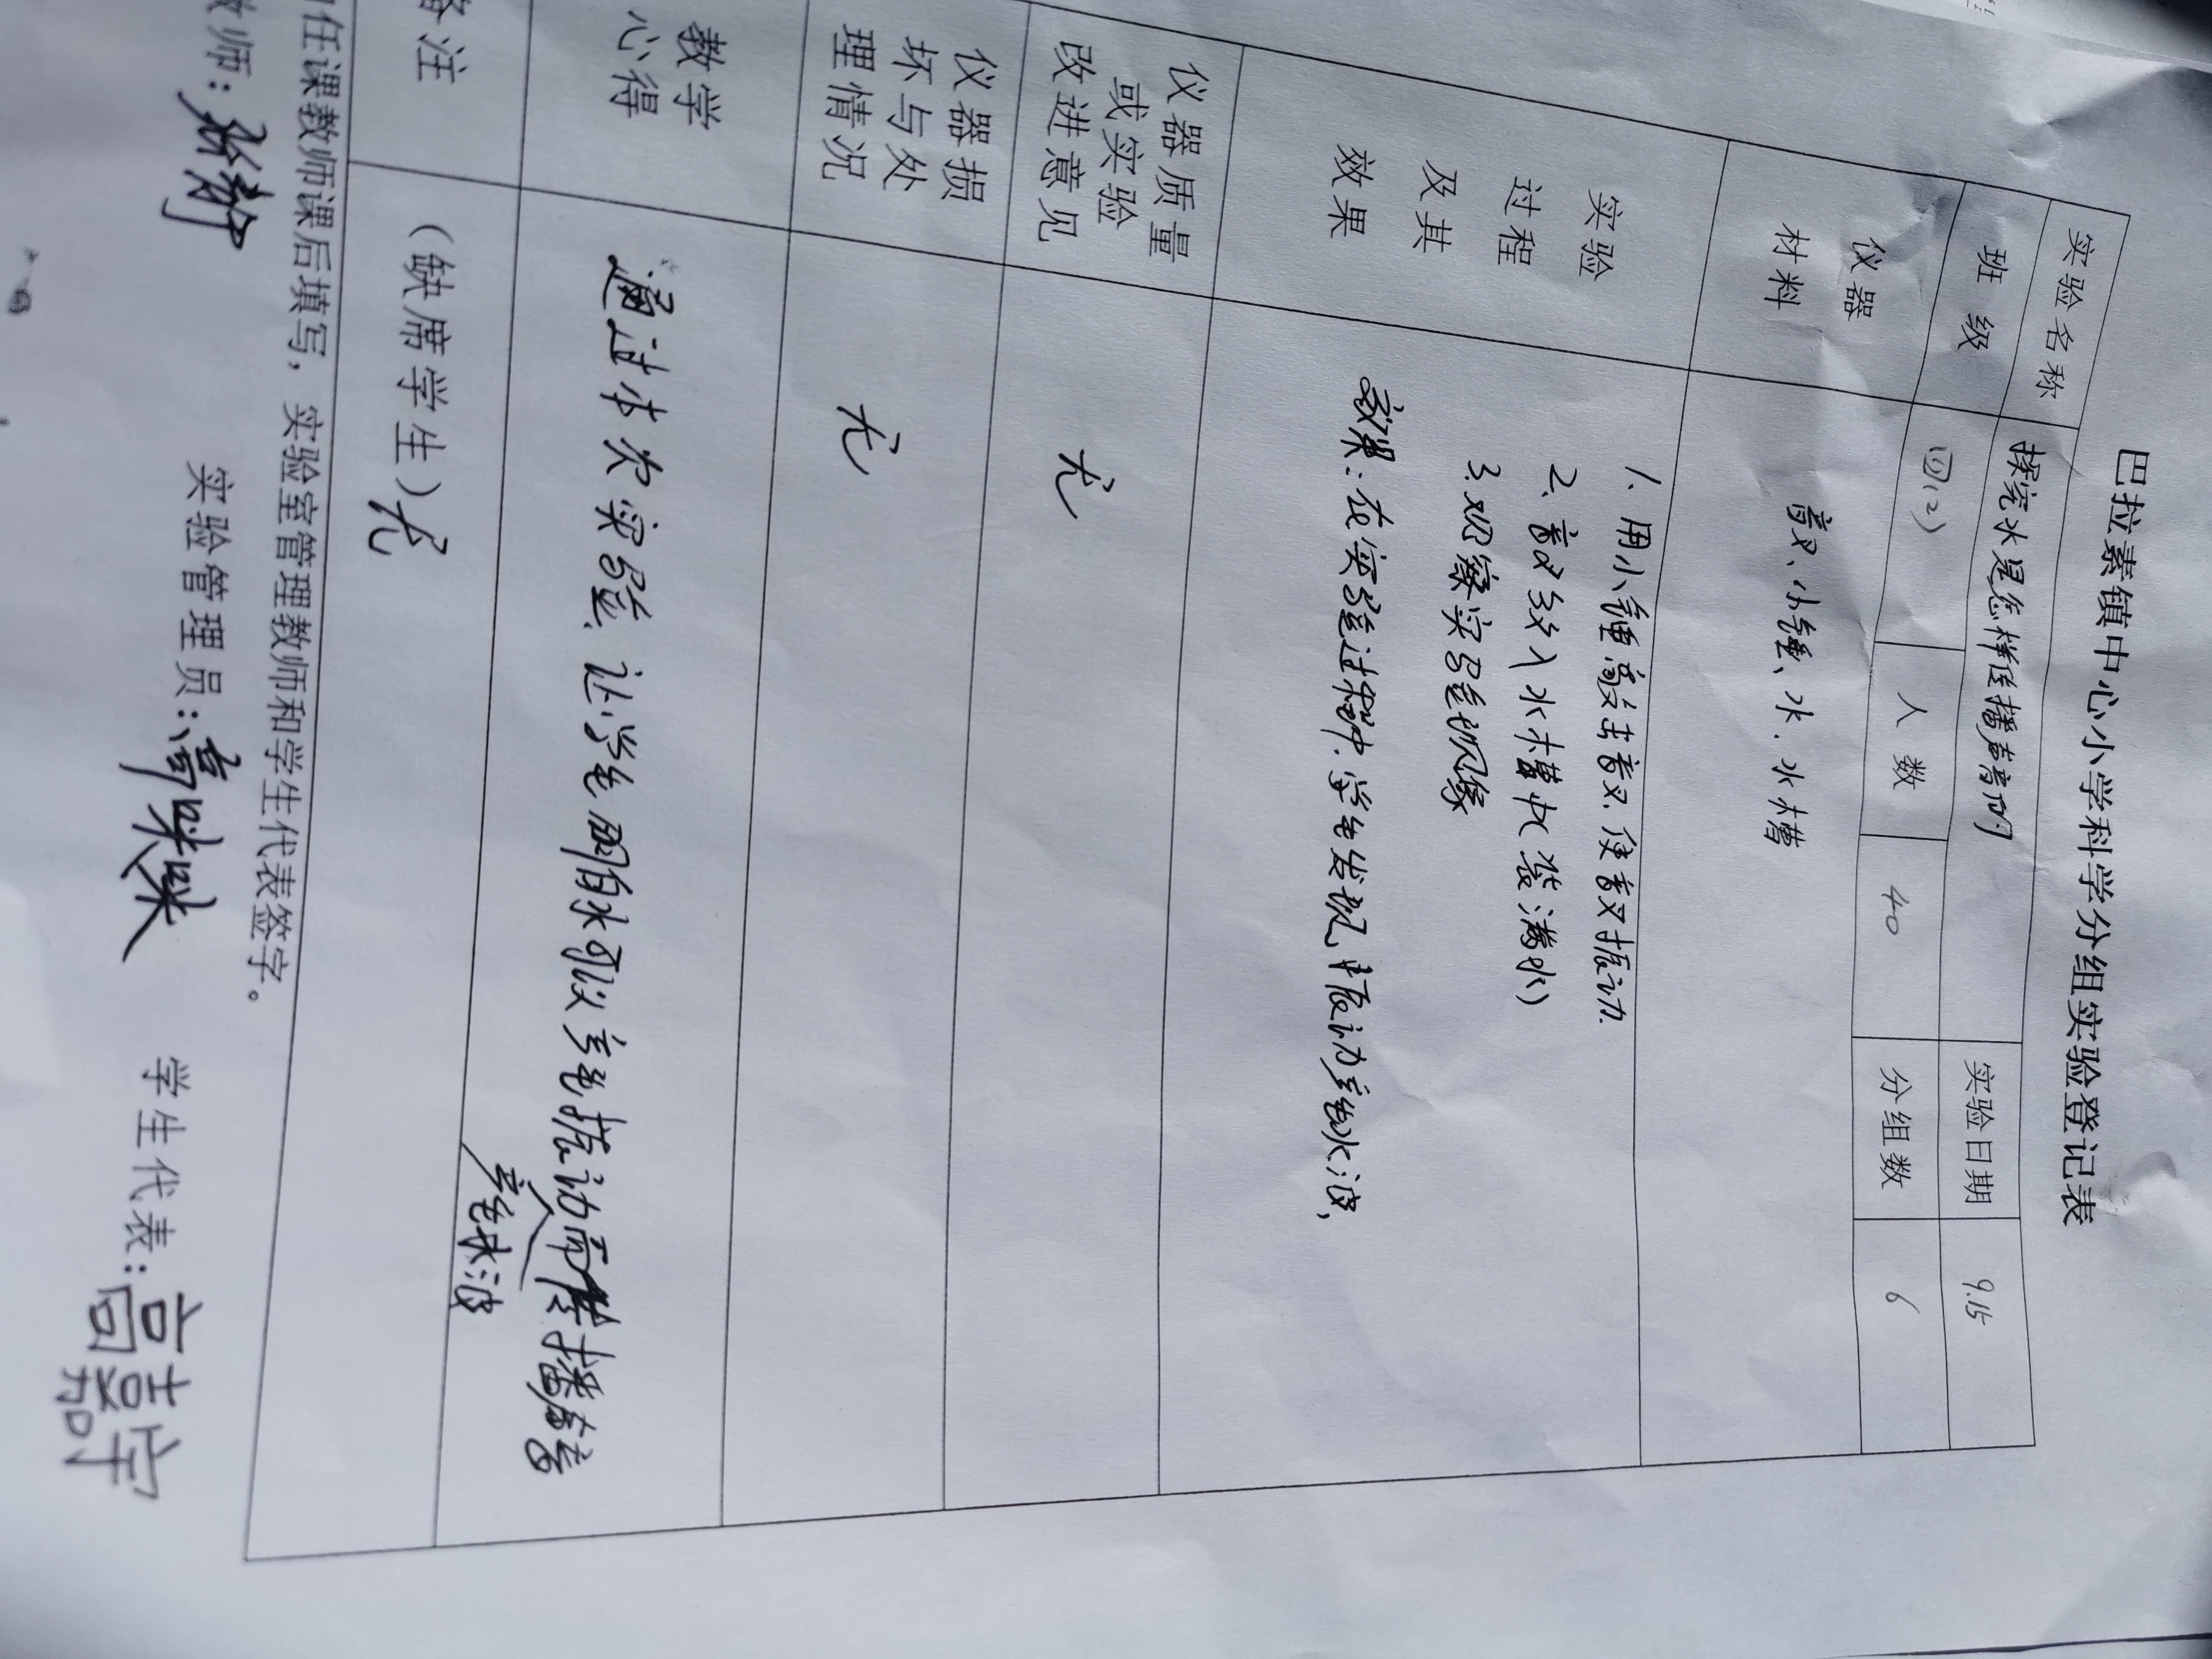 巴拉素镇中心小学科学分组实验登记表
实验名称 探究水是怎样传播声音的 实验日期 9.15
班 级 四(2) 人 数 40 分组数 6
仪器
材料
音叉、小锤、水、水槽
实验
过程
及其
效果
1、用小锤敲击音叉,使音叉振动.
2、音叉放入水槽中(装满水)
3.观察实验现象
效果:在实验过程中,学生发现,振动产生水波,
仪器质量
或实验
改进意见
无
仪器损
坏与处
理情况
无
教学
心得
通过本次实验,让学生明白水可以产生振动而传播声音
产生水波
备注
(缺席学生)无
任课教师课后填写,实验室管理教师和学生代表签字。
教师: 实验管理员:高 学生代表:高嘉宁